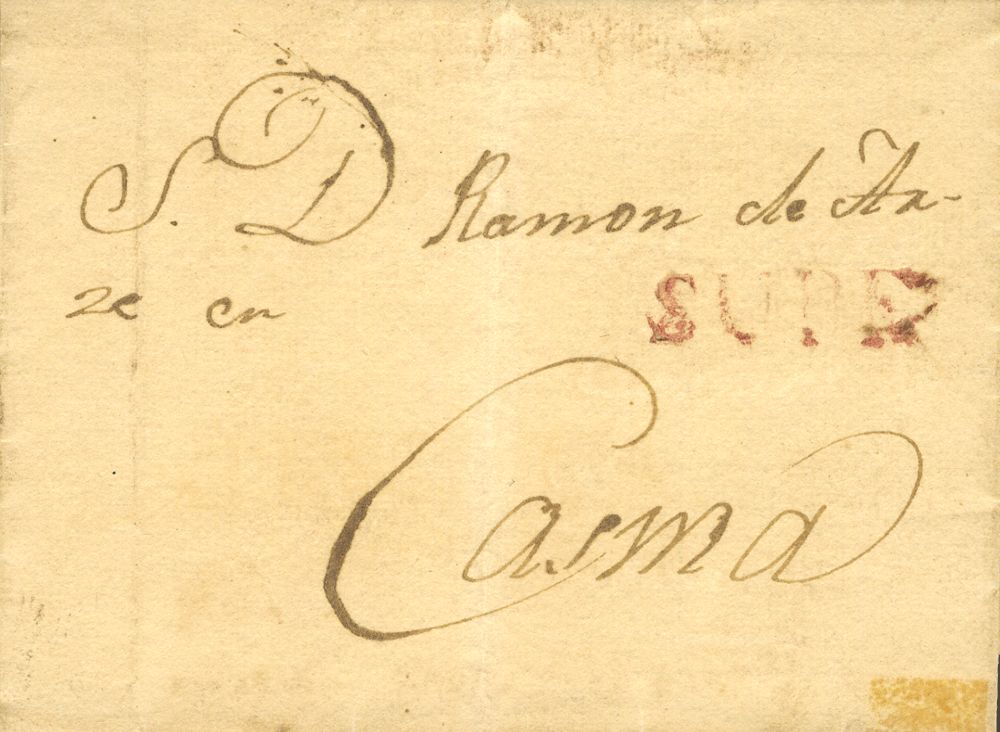 S. D Ramon de Aa-
ze en
SUPE
Casma